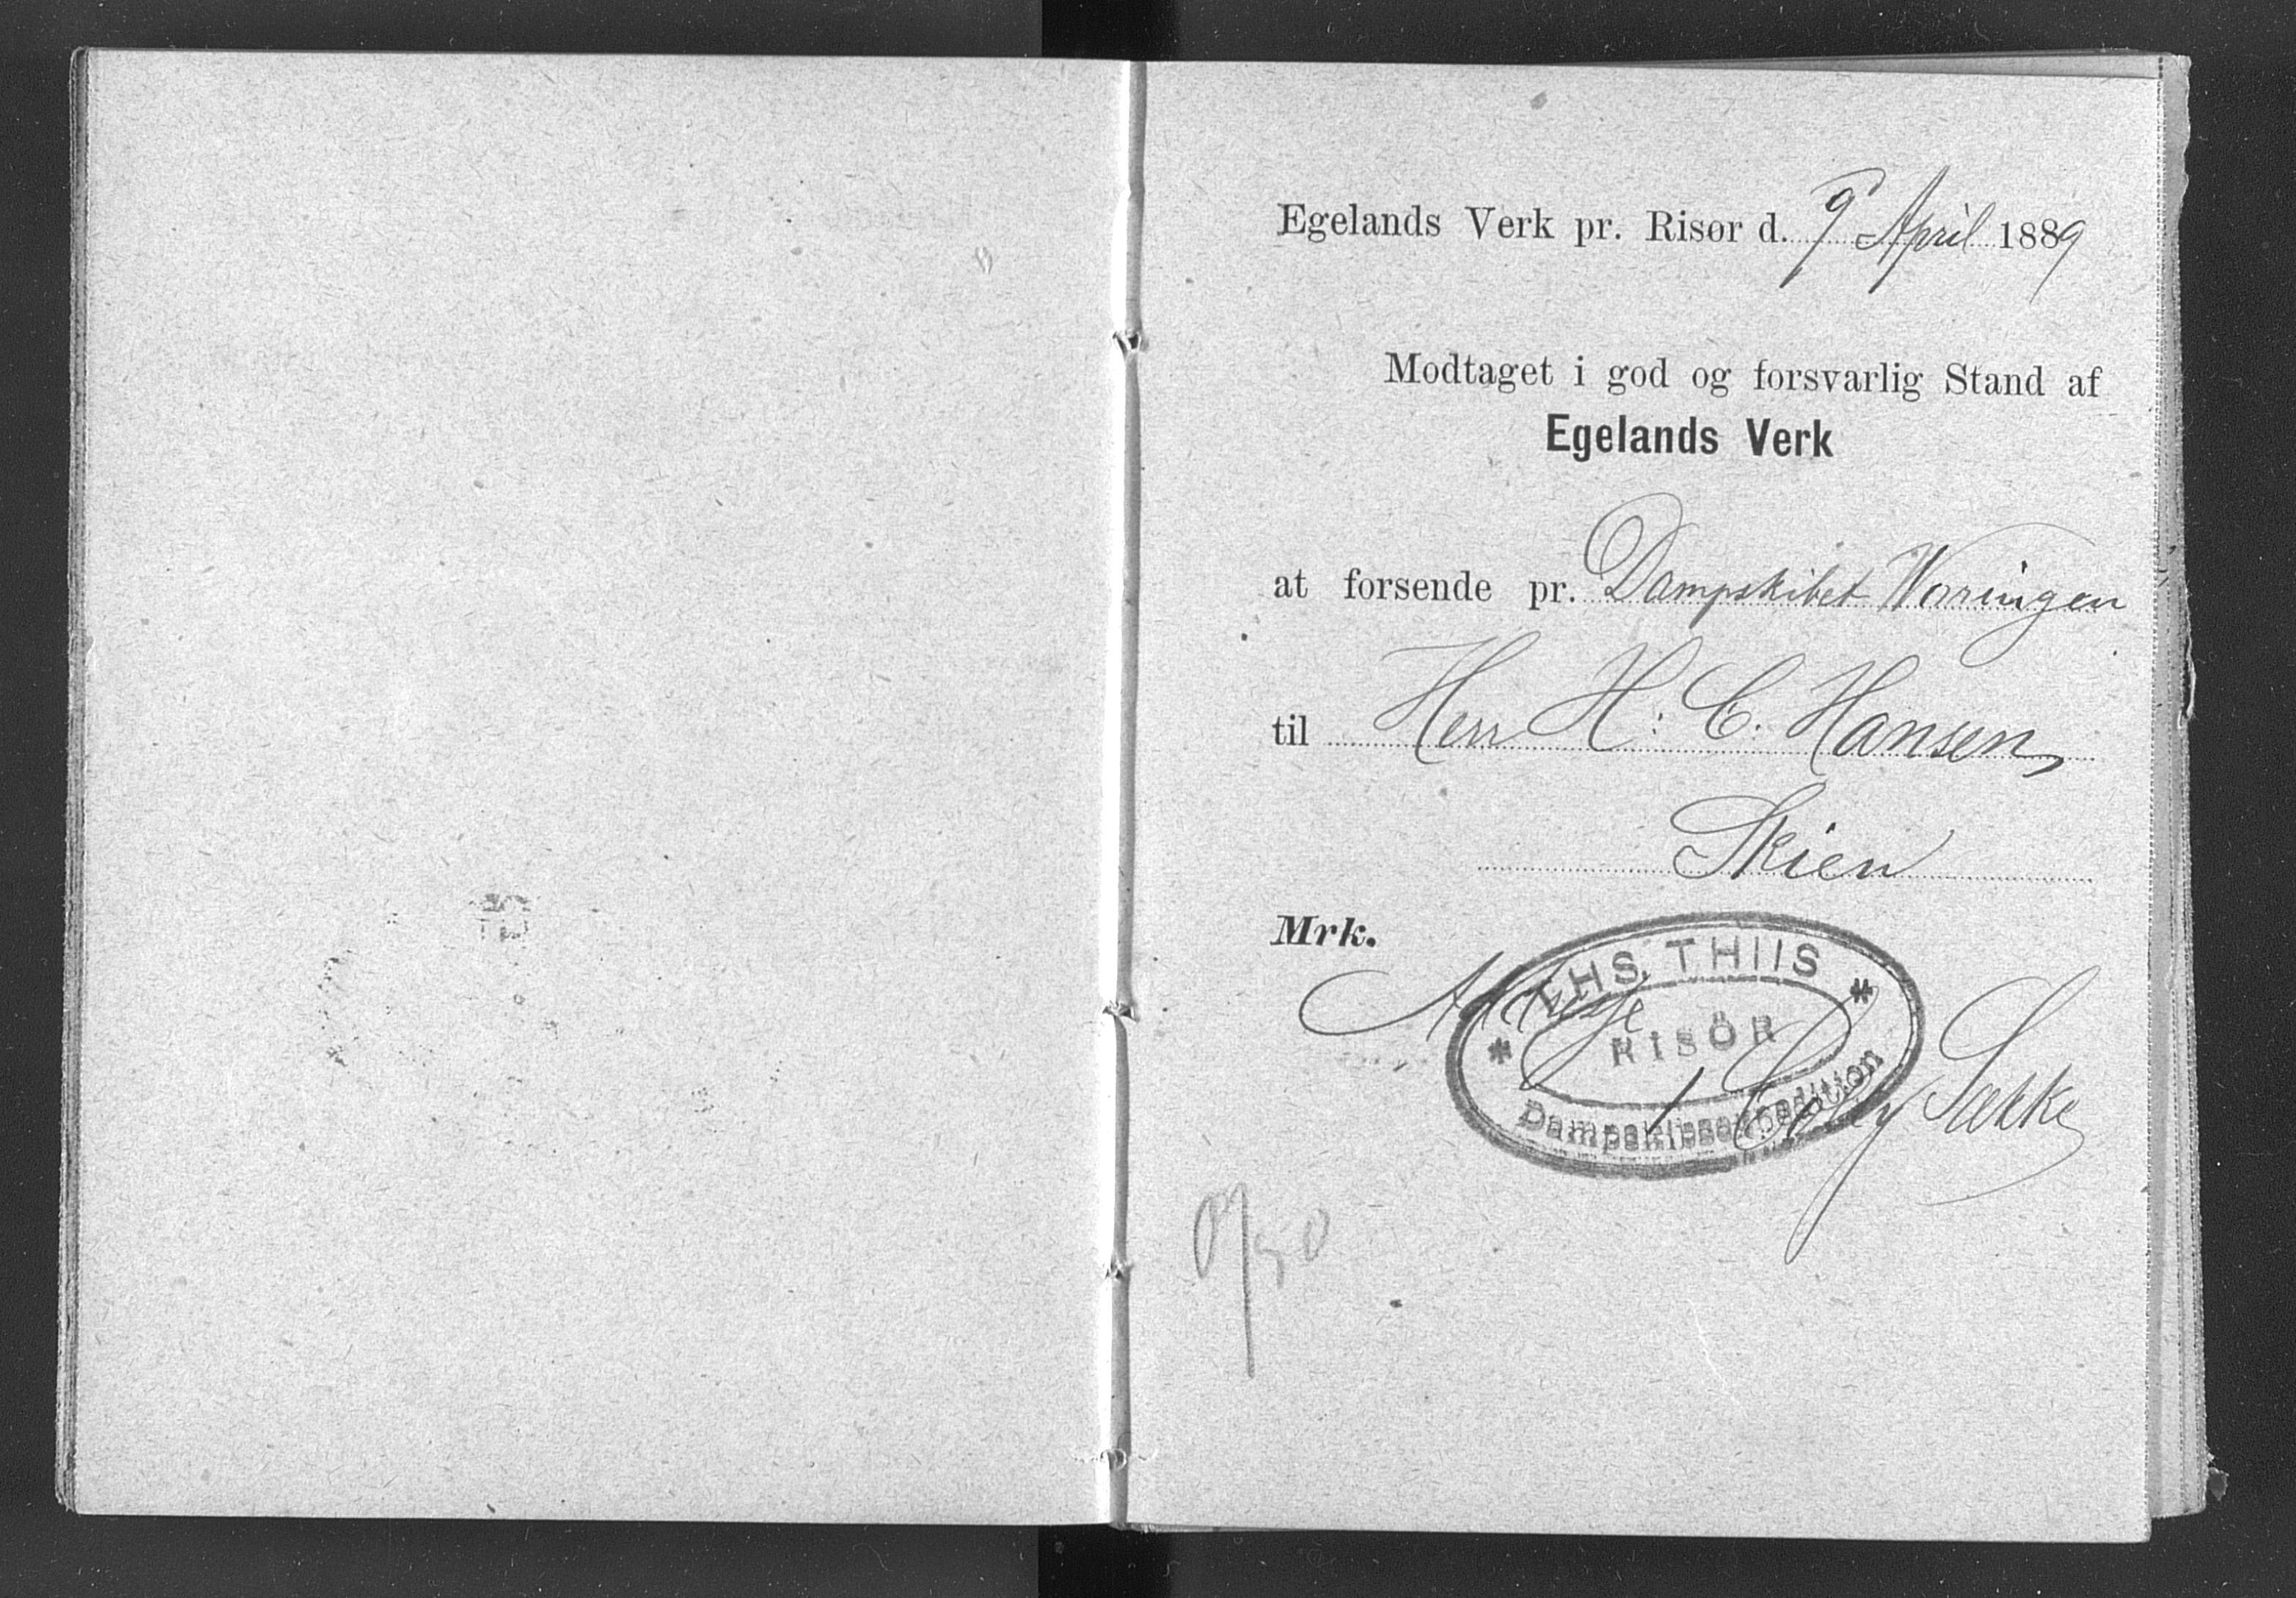 Egelands Verk pr. Risør d. 9 April 1889
Modtaget i god og forsvarlig Stand af
Egelands Verk
at forsende pr. Dampskibet Vøringen
til Herr H: C. Hansen,
Skien
Mrk.
Adresse
THS. THIIS
RISÖR
Dampskibsexpedition
1 Colly Sække
0/50